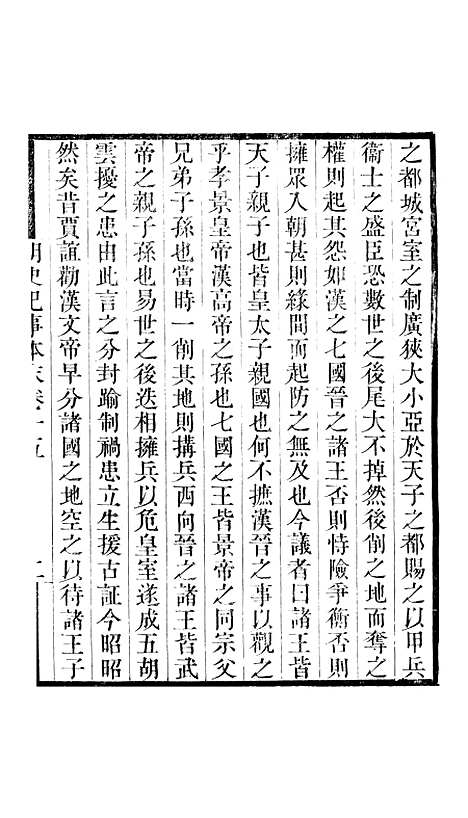 之都城宮室之制廣狹大小亞於天子之都賜之以甲兵
衞士之盛臣恐數世之後尾大不掉然後削之地而奪之
權則起其怨如漢之七國晉之諸王否則恃險爭衡否則
擁眾入朝甚則緣間而起防之無及也今議者曰諸王皆
天子親子也皆皇太子親國也何不摭漢晉之事以觀之
乎孝景皇帝漢高帝之孫也七國之王皆景帝之同宗父
兄弟子孫也當時一削其地則搆兵西向晉之諸王皆武
帝之親子孫也易世之後迭相擁兵以危皇室遂成五胡
雲擾之患由此言之分封踰制禍患立生援古証今昭昭
然矣昔賈誼勸漢文帝早分諸國之地空之以待諸王子
明史紀事本末卷十五 二